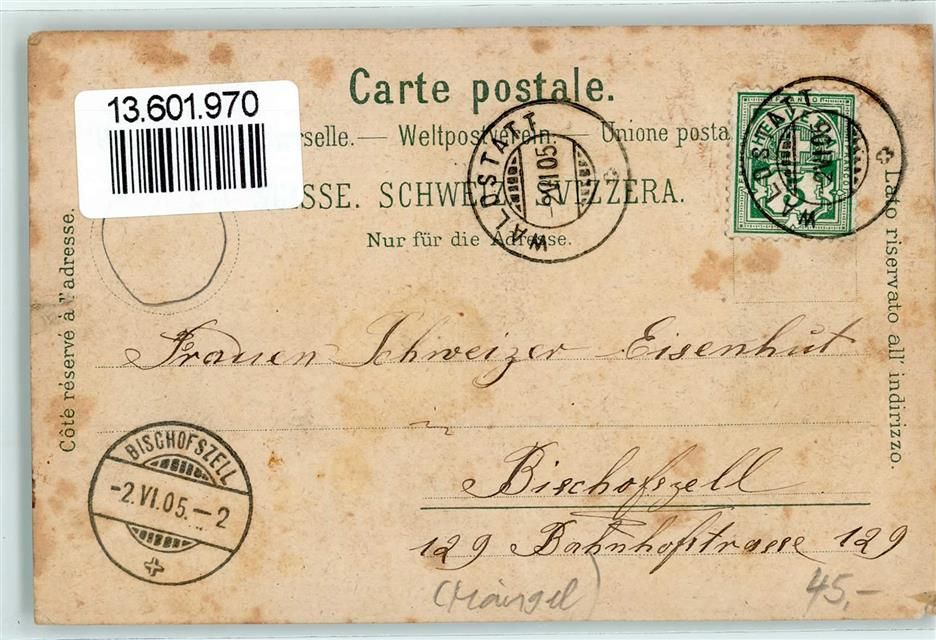 13.601.970
Carte postale.
rselle. — Weltpostverein. — Unione posta
SSE. SCHWEIZ. SVIZZERA.
Nur für die Adresse.
WALDSTATT
-2.VI.05
WALDSTATT
Côté réservé à l'adresse.
Lato riservato all' indirizzo.
Frauen Schweizer-Eisenhut
in
Bischofszell
129 Bahnhofstrasse 129
BISCHOFSZELL
-2.VI.05.-2
(Mängel)
45,-